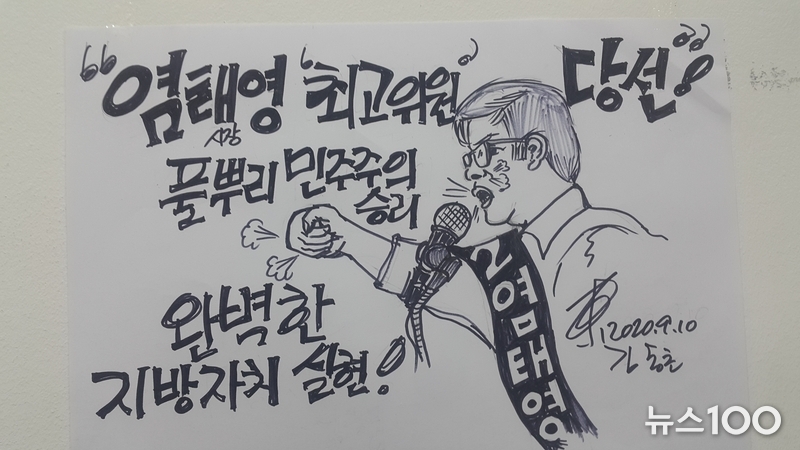 “염태영 '최고위원' 당선!”
시장
풀뿌리 민주주의
승리
완벽한
지방자치 실현!
2염태영
2020.9.10
뉴스100